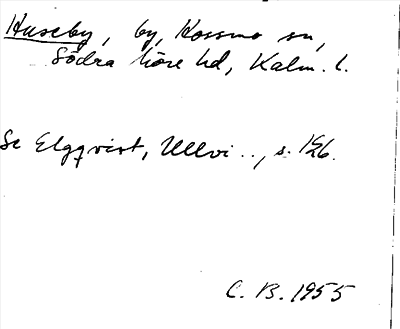 Huseby, by, Hossmo sn,
Södra Möre hd, Kalm. l.
Se Elgqvist, Ullvi.., s. 126.
C. B. 1955